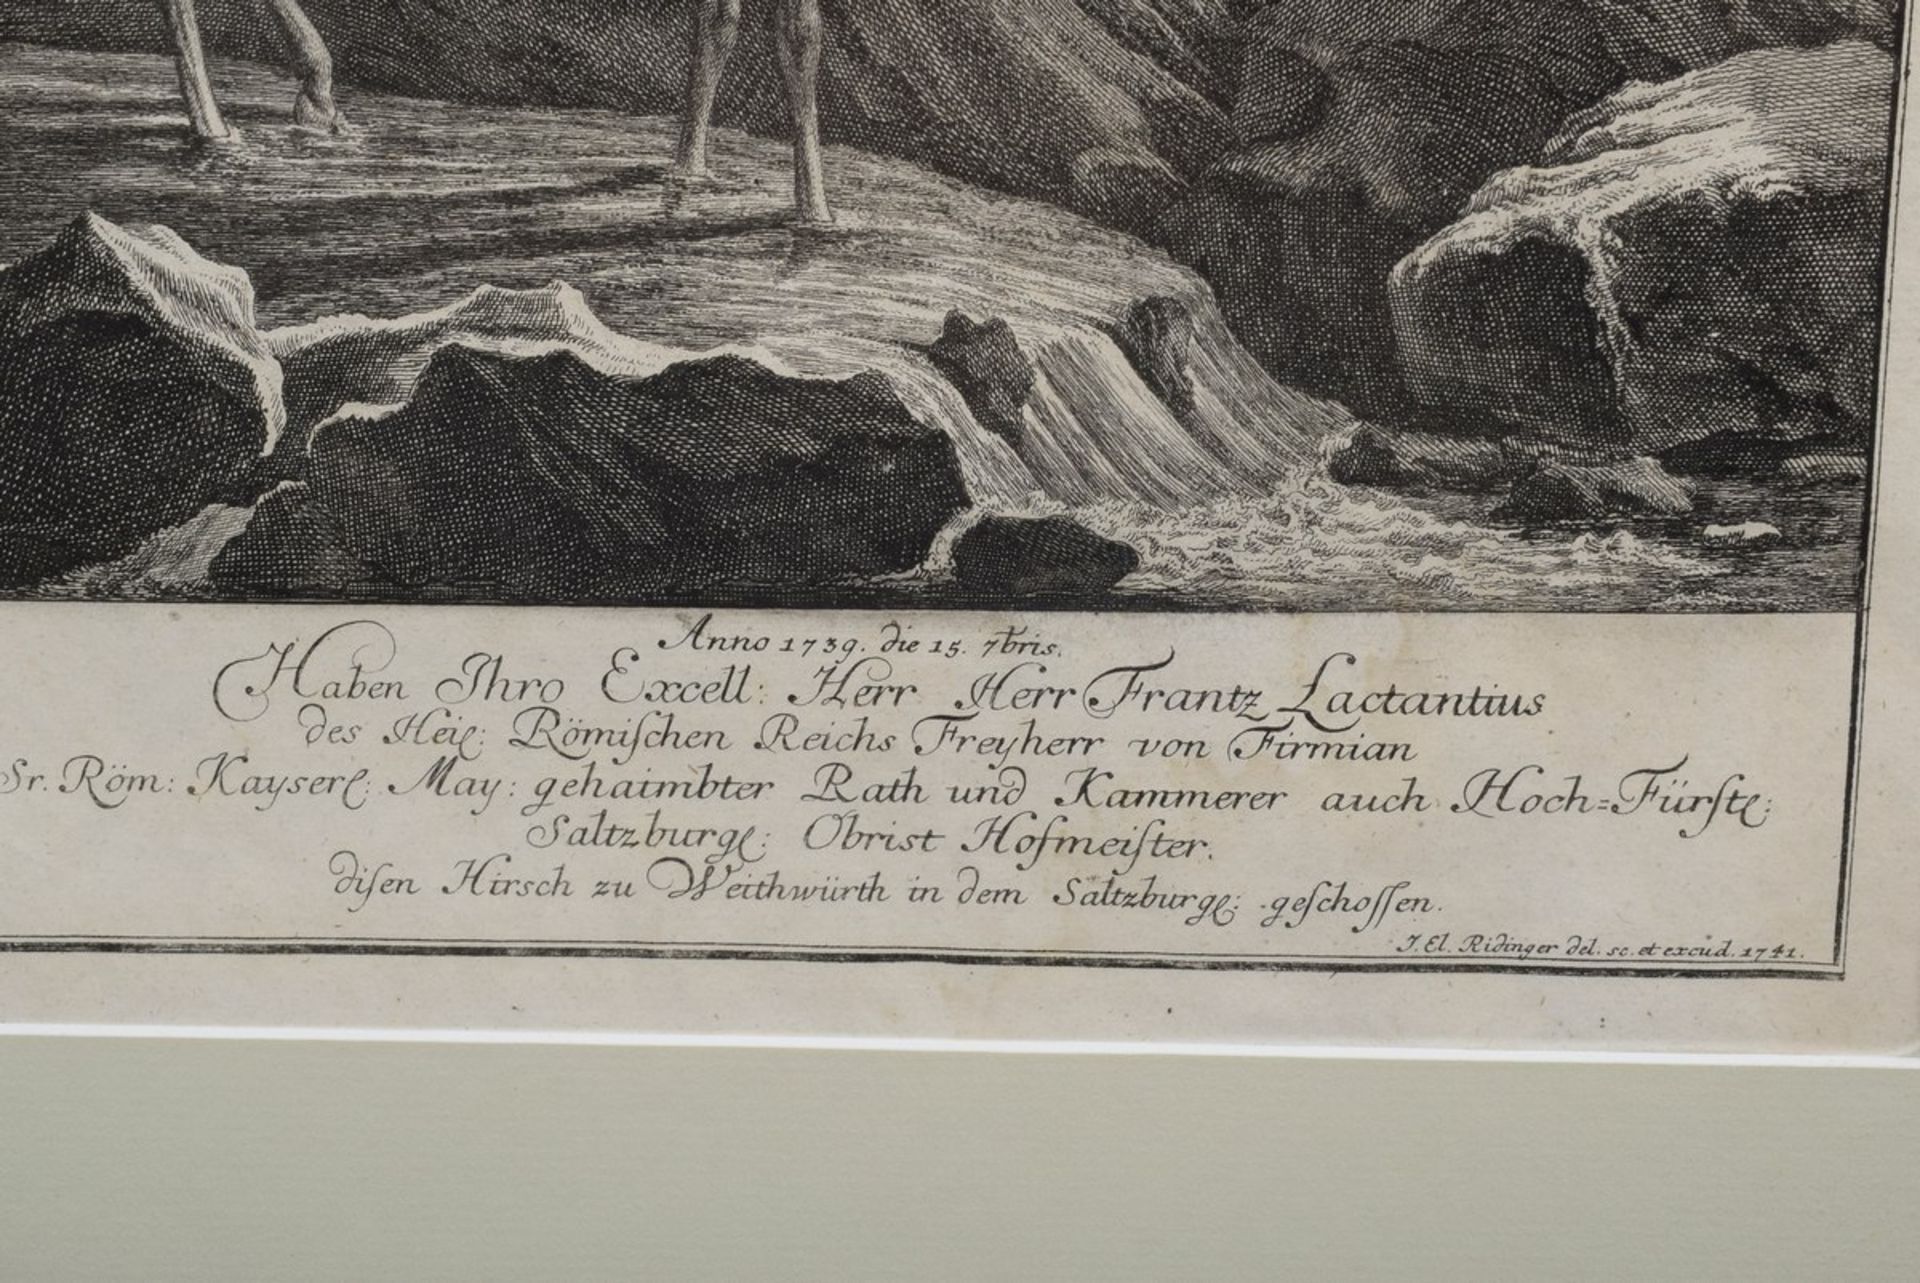 Anno 1739. die 15. 7bris.
Haben Ihro Excell: Herr Herr Frantz Lactantius
des Heil: Römiſchen Reichs Freyherr von Firmian
Sr. Röm: Kayserl: May: gehaimbter Rath und Kammerer auch Hoch=Fürſtl:
Saltzburgl: Obrist Hofmeiſter.
diſen Hirsch zu Weithwürth in dem Saltzburgl: geſchoſſen.
J. El. Ridinger del. sc. et excud. 1741.